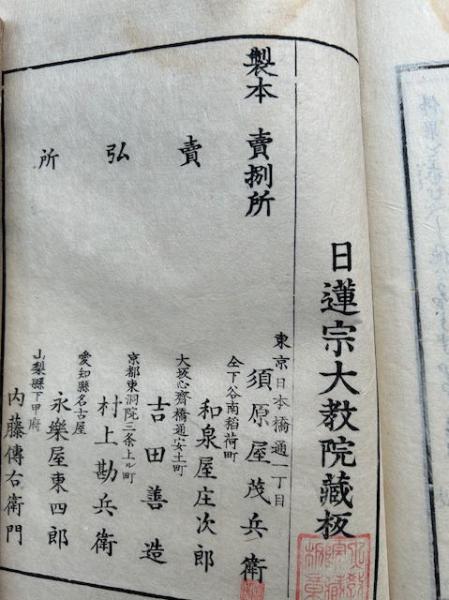 日蓮宗大教院蔵板
製本 賣捌所
東京日本橋通一丁目
須原屋茂兵衛
仝下谷南稲荷町
和泉屋庄次郎
賣
大坂心齋橋通安土町
吉田善造
弘
京都東洞院三条上ル町
村上勘兵衛
愛知縣名古屋
永樂屋東四郎
所
山梨縣下甲府
内藤傳右衛門